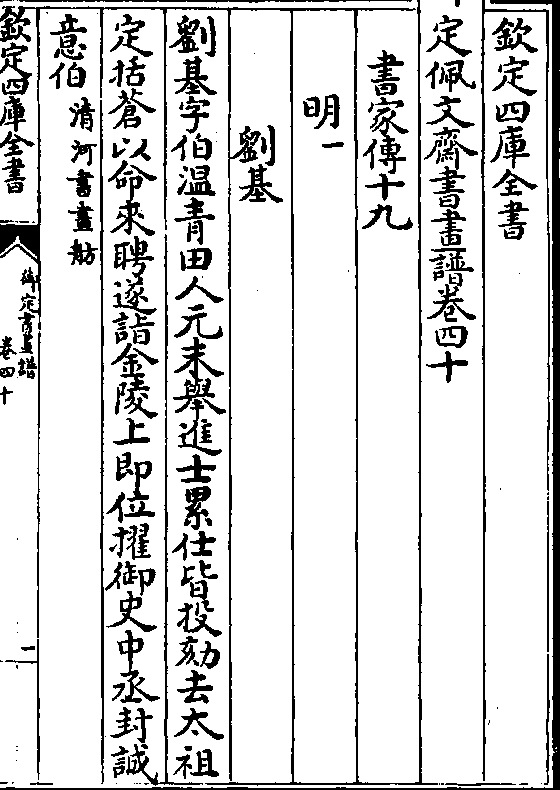 欽定四庫全書
定佩文齋書畫譜卷四十
書家傳十九
明一
劉基
劉基字伯溫青田人元末舉進士累仕皆投劾去太祖
定括蒼以命來聘遂詣金陵上即位擢御史中丞封誠
意伯清河書畫舫
欽定四庫全書
御定書畫譜
卷四十
一